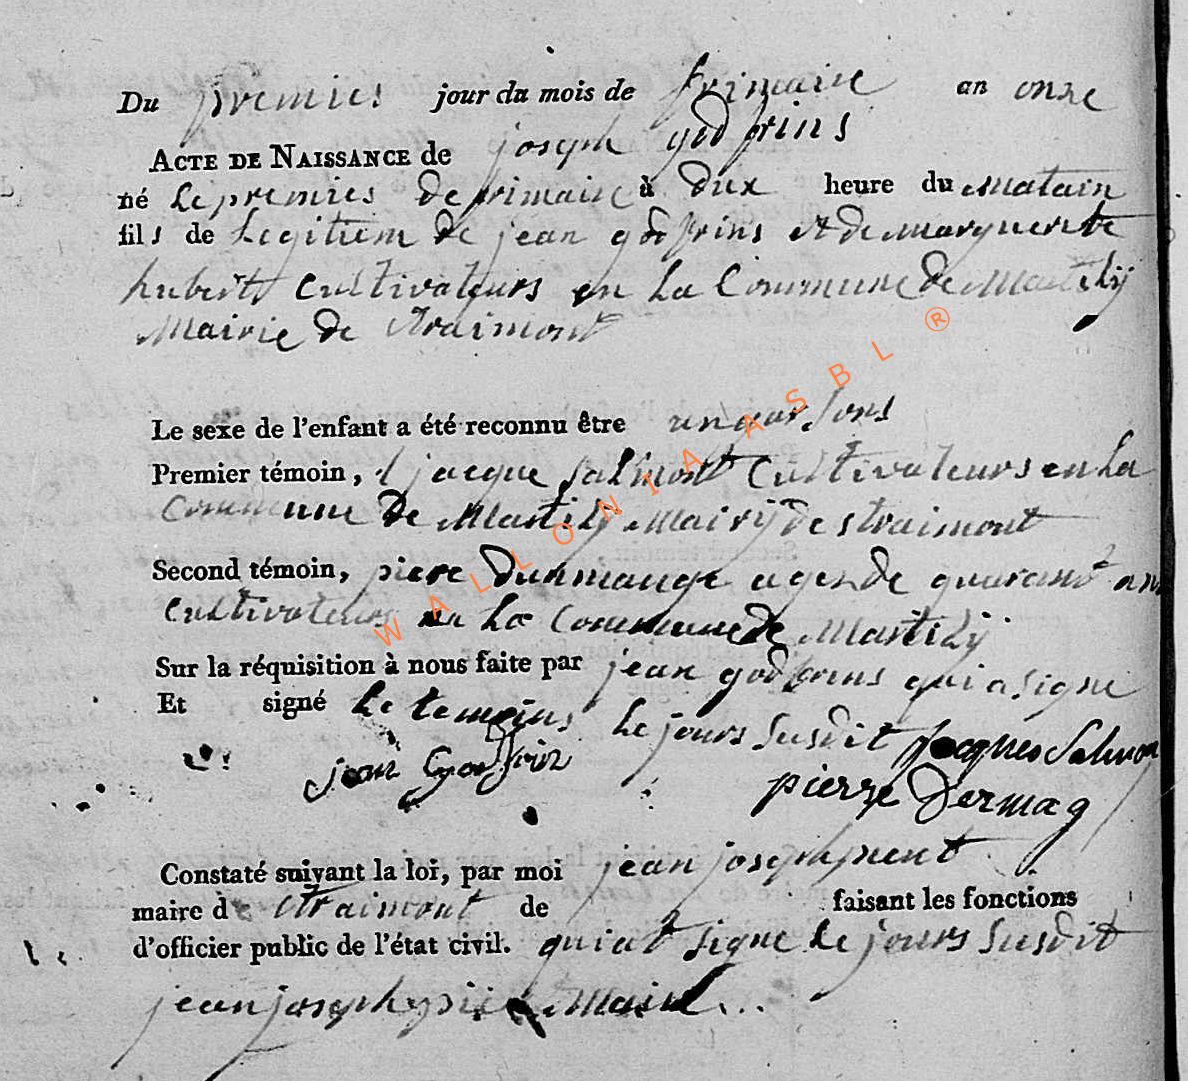 Du premier jour du mois de frimaire an onze
ACTE DE NAISSANCE de joseph godfrins
né le premier de frimaire à dix heure du matain
fils de Legitiem de jean godfrins et de marguerite
hubert cultivateurs en la Commune de Martily
Mairie de straimont
Le sexe de l'enfant a été reconnu être un garsons
Premier témoin, jacque salmont Cultivateurs en la
Commune de Martily Mairij de straimont
Second témoin, piere age de quarant ans
Cultivateurs en la Commune de Martily
Sur la réquisition à nous faite par jean godfrins qui a signe
Et signé le temoins le jours susdit jacques Salmon
jean Godfrin
pierre Dermag
Constaté suivant la loi, par moi jean joseph
maire de straimont de faisant les fonctions
d'officier public de l'état civil. qui at signe le jours susdit
jean joseph Maire
WALLONIA ASBL ®